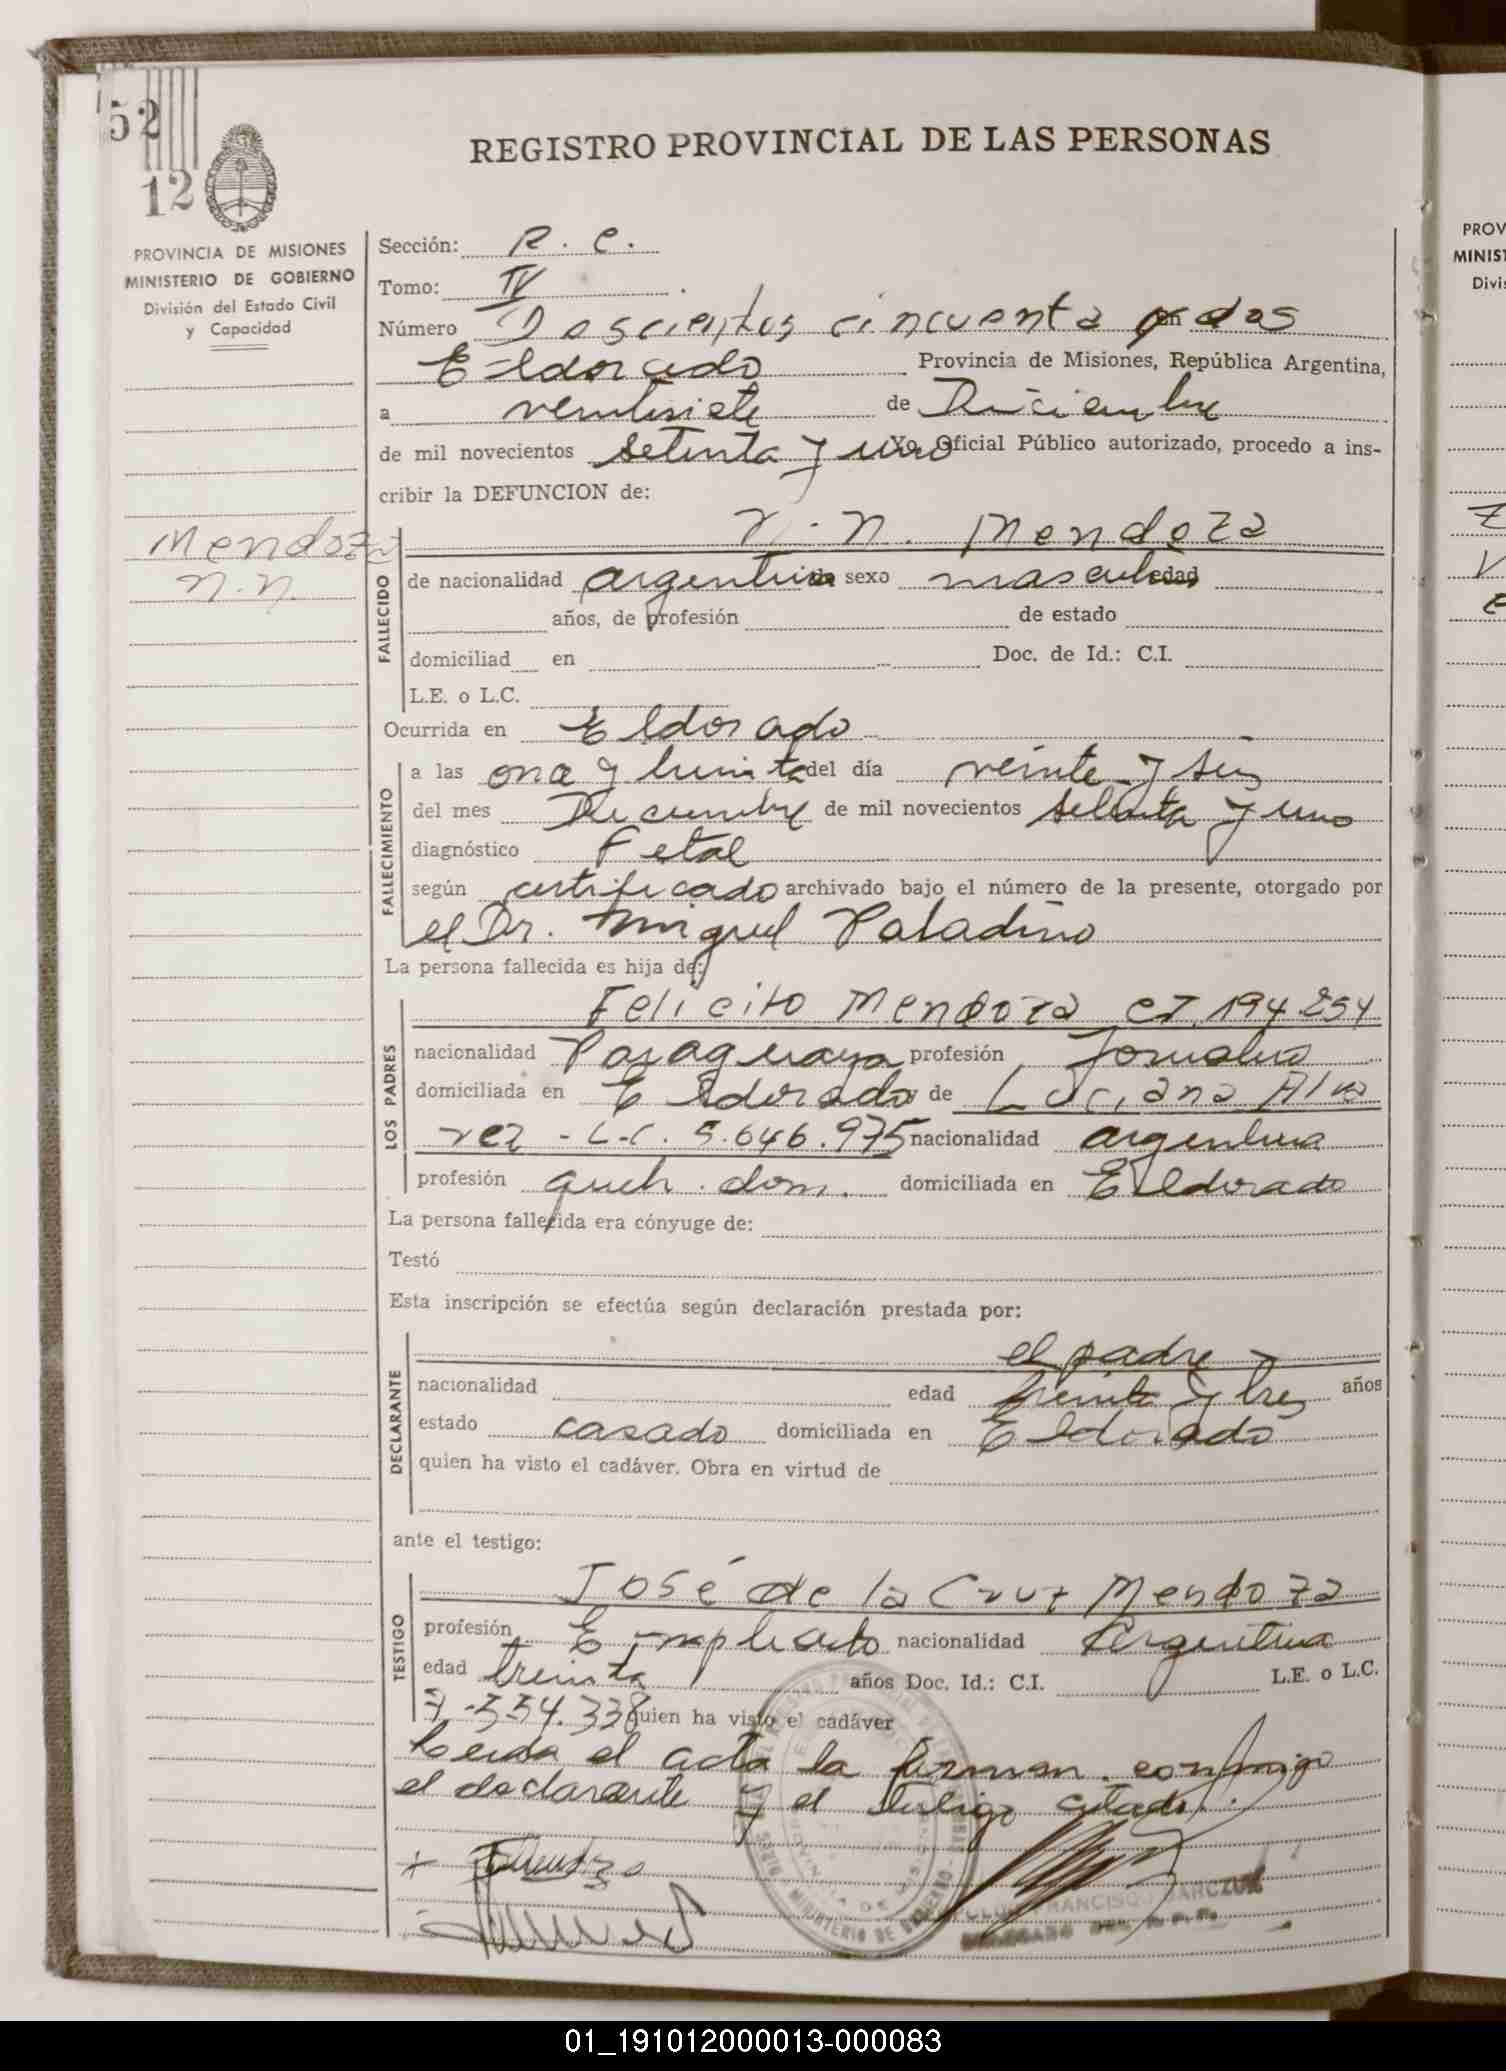 52
12
REGISTRO PROVINCIAL DE LAS PERSONAS
PROVINCIA DE MISIONES
MINISTERIO DE GOBIERNO
División del Estado Civil
y Capacidad
Sección: R. C.
Tomo: IV
Número Doscientos cincuenta y dos en
Eldorado Provincia de Misiones, República Argentina,
a veintisiete de Diciembre
de mil novecientos setenta y uno Yo, Oficial Público autorizado, procedo a ins-
cribir la DEFUNCION de:
Mendoza
N.N.
FALLECIDO
N.N. Mendoza
de nacionalidad argentina de sexo masculino edad
años, de profesión de estado
domiciliad en Doc. de Id.: C.I.
L.E. o L.C.
Ocurrida en Eldorado
FALLECIMIENTO
a las once y treinta del día veinte y seis
del mes Diciembre de mil novecientos setenta y uno
diagnóstico Fetal
según certificado archivado bajo el número de la presente, otorgado por
el Dr. Miguel Paladino
La persona fallecida es hija de:
LOS PADRES
Felicito Mendoza CI 194.254
nacionalidad Paraguaya profesión Jornalero
domiciliada en Eldorado y de Luciana Alva
rez - L.C. 5.646.975 nacionalidad argentina
profesión queh. dom. domiciliada en Eldorado
La persona fallecida era cónyuge de:
Testó
Esta inscripción se efectúa según declaración prestada por:
DECLARANTE
el padre
nacionalidad edad treinta y tres años
estado casado domiciliada en Eldorado
quien ha visto el cadáver. Obra en virtud de
ante el testigo:
TESTIGO
José de la Cruz Mendoza
profesión Empleado nacionalidad Argentina
edad treinta años Doc. Id.: C.I. L.E. o L.C.
7.554.338 quien ha visto el cadáver
Leida el acta la firman conmigo
el declarante y el testigo citado.
FRANCISCO
MINISTERIO DE GOBIERNO
PROV
MINIST
Divi
01_191012000013-000083